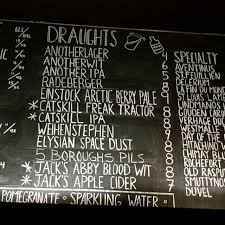 DRAUGHTS
ANOTHERLAGER
ANOTHERWIT
ANOTHER IPA
RADEBERGER
EINSTOK ARCTIC BERRY PALE 9
*CATSKILL FREAK TRACTOR 8
*CATSKILL IPA
WEIHENSTEPHEN
ELYSIAN SPACE DUST
5 BOROUGHS PILS
*JACK'S ABBY BLOOD WIT
*JACK'S APPLE CIDER 7
SPECIALTY
AVENTINUS
ST. FEUILLIEN
DELERIUM
LA FIN DU MOND
ST LOUIS
LINDMANS
GOUDEN CARO
VERHAEGE DUC
WESTMALLE
DAY OF THE
HITACHINO
CHIMAY BL
ROCHEFORT
OLD RASPU
SMUTTYNOS
DUVEL
POMEGRANATE • SPARKLING WATER •